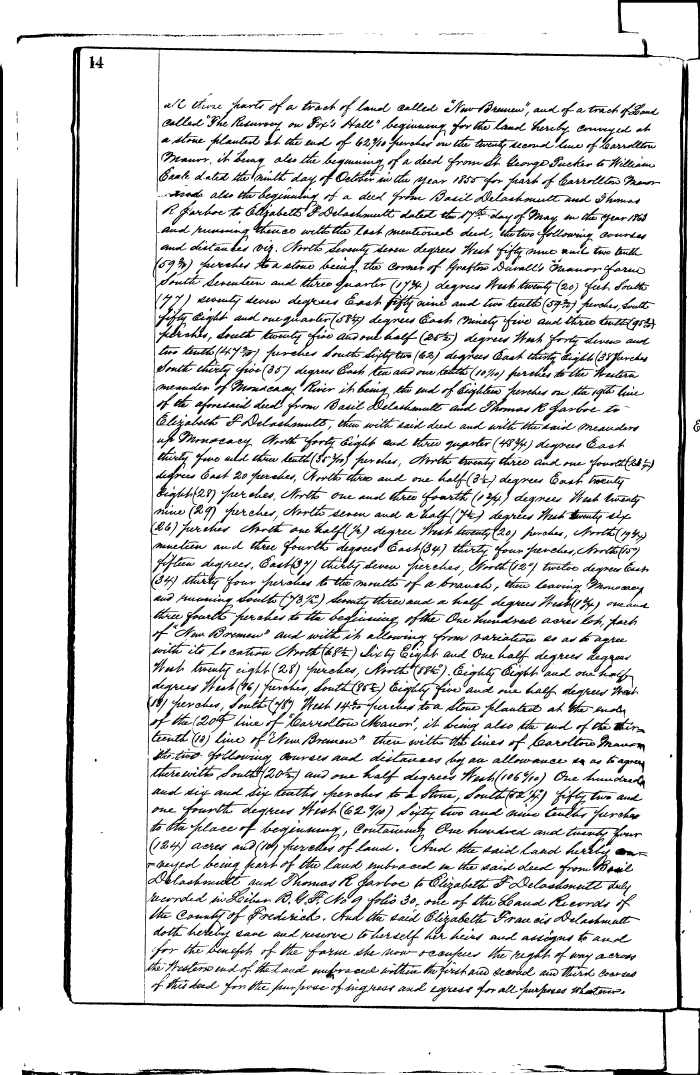 14
all those parts of a tract of land called "New Bremen", and of a tract of Land
called "The Resurvey on Fox's Hall" beginning for the land hereby conveyed at
a stone planted at the end of 62 9/10 perches on the twenty second line of Carrollton
Manor, it being also the beginning of a deed from St George Tucker to William
dated the ninth day of October in the year 1855 for part of Carrollton Manor
and also the beginning of a deed from Basil Delashmutt and Thomas
R Jarboe to Elizabeth F Delashmutt dated the 17th day of May in the year 1863
and running thence with the last mentioned deed, the two following courses
and distances viz. North seventy seven degrees West fifty nine and two tenth
(59 2/10) perches to a stone being the corner of Grafton Duvall's "Manor farm
South seventeen and three quarter (17 3/4) degrees West twenty (20) feet South
(77) seventy seven degrees East fifty nine and two tenth (59 2/10) perches, South
fifty Eight and one quarter (58 1/4) degrees East Ninety five and three tenth (95 3/10)
perches, South twenty five and one half (25 1/2) degrees West forty seven and
two tenth (47 2/10) perches South Sixty two (62) degrees East thirty Eight (38) perches
South thirty five (35) degrees East ten and one tenth (10 1/10) perches to the Western
meander of Monocacy River it being the end of Eighteen perches on the 19th line
of the aforesaid deed from Basil Delashmutt and Thomas R Jarboe to
Elizabeth F Delashmutt, then with said deed and with the said meanders
up Monocacy North forty Eight and three quarter (48 3/4) degrees East
thirty five and three tenth (35 3/10) perches, North twenty three and one fourth (23 1/4)
degrees East 20 perches, North three and one half (3 1/2) degrees East twenty
Eight (28) perches, North one and three fourth (1 3/4) degrees West twenty
nine (29) perches, North seven and a half (7 1/2) degrees West twenty six
(26) perches North one half (1/2) degree West twenty (20) perches, North (19 3/4)
nineteen and three fourth degrees East (34) thirty four perches, North (15°)
fifteen degrees, East (37) thirty seven perches, North (12°) twelve degrees East
(34) thirty four perches to the mouth of a branch, then leaving Monocacy
and running South (73 1/2°) Seventy three and a half degrees West (1 3/4) one and
three fourth perches to the beginning of the One hundred acres lot, part
of "New Bremen" and with it allowing from variation so as to agree
with its location North (68 1/2) Sixty Eight and One half degrees degrees
West twenty eight (28) perches, North (88 1/2°) Eighty Eight and one half
degrees West (46) perches, South (85 1/2) Eighty five and one half degrees West
(18) perches, South (78°) West perches to a Stone planted at the end
of the (20th) line of "Carrollton Manor", it being also the end of the thir-
teenth (13) line of "New Bremen" then with the lines of Carolton Manor
the two following courses and distances by an allowance so as to agree
therewith South (20 1/2) and one half degrees West (106 6/10) One hundred
and six and six tenths perches to a Stone, South (52 1/4°) fifty two and
one fourth degrees West (62 9/10) Sixty two and nine tenths perches
to the place of beginning, containing One hundred and twenty four
(124) acres and (10) perches of land. And the said land hereby con-
-veyed being part of the land embraced in the said deed from Basil
Delashmutt and Thomas R Jarboe to Elizabeth F Delashmutt duly
recorded in Liber B.G.F. No 9 folio 30, one of the Land Records of
the County of Frederick. And the said Elizabeth Francis Delashmutt
doth hereby save and reserve to herself her heirs and assigns to and
for the benefit of the farm she now occupies the right of way across
the Western end of the land embraced within the first and second and third courses
of this deed for the purpose of ingress and egress for all purposes whatever.